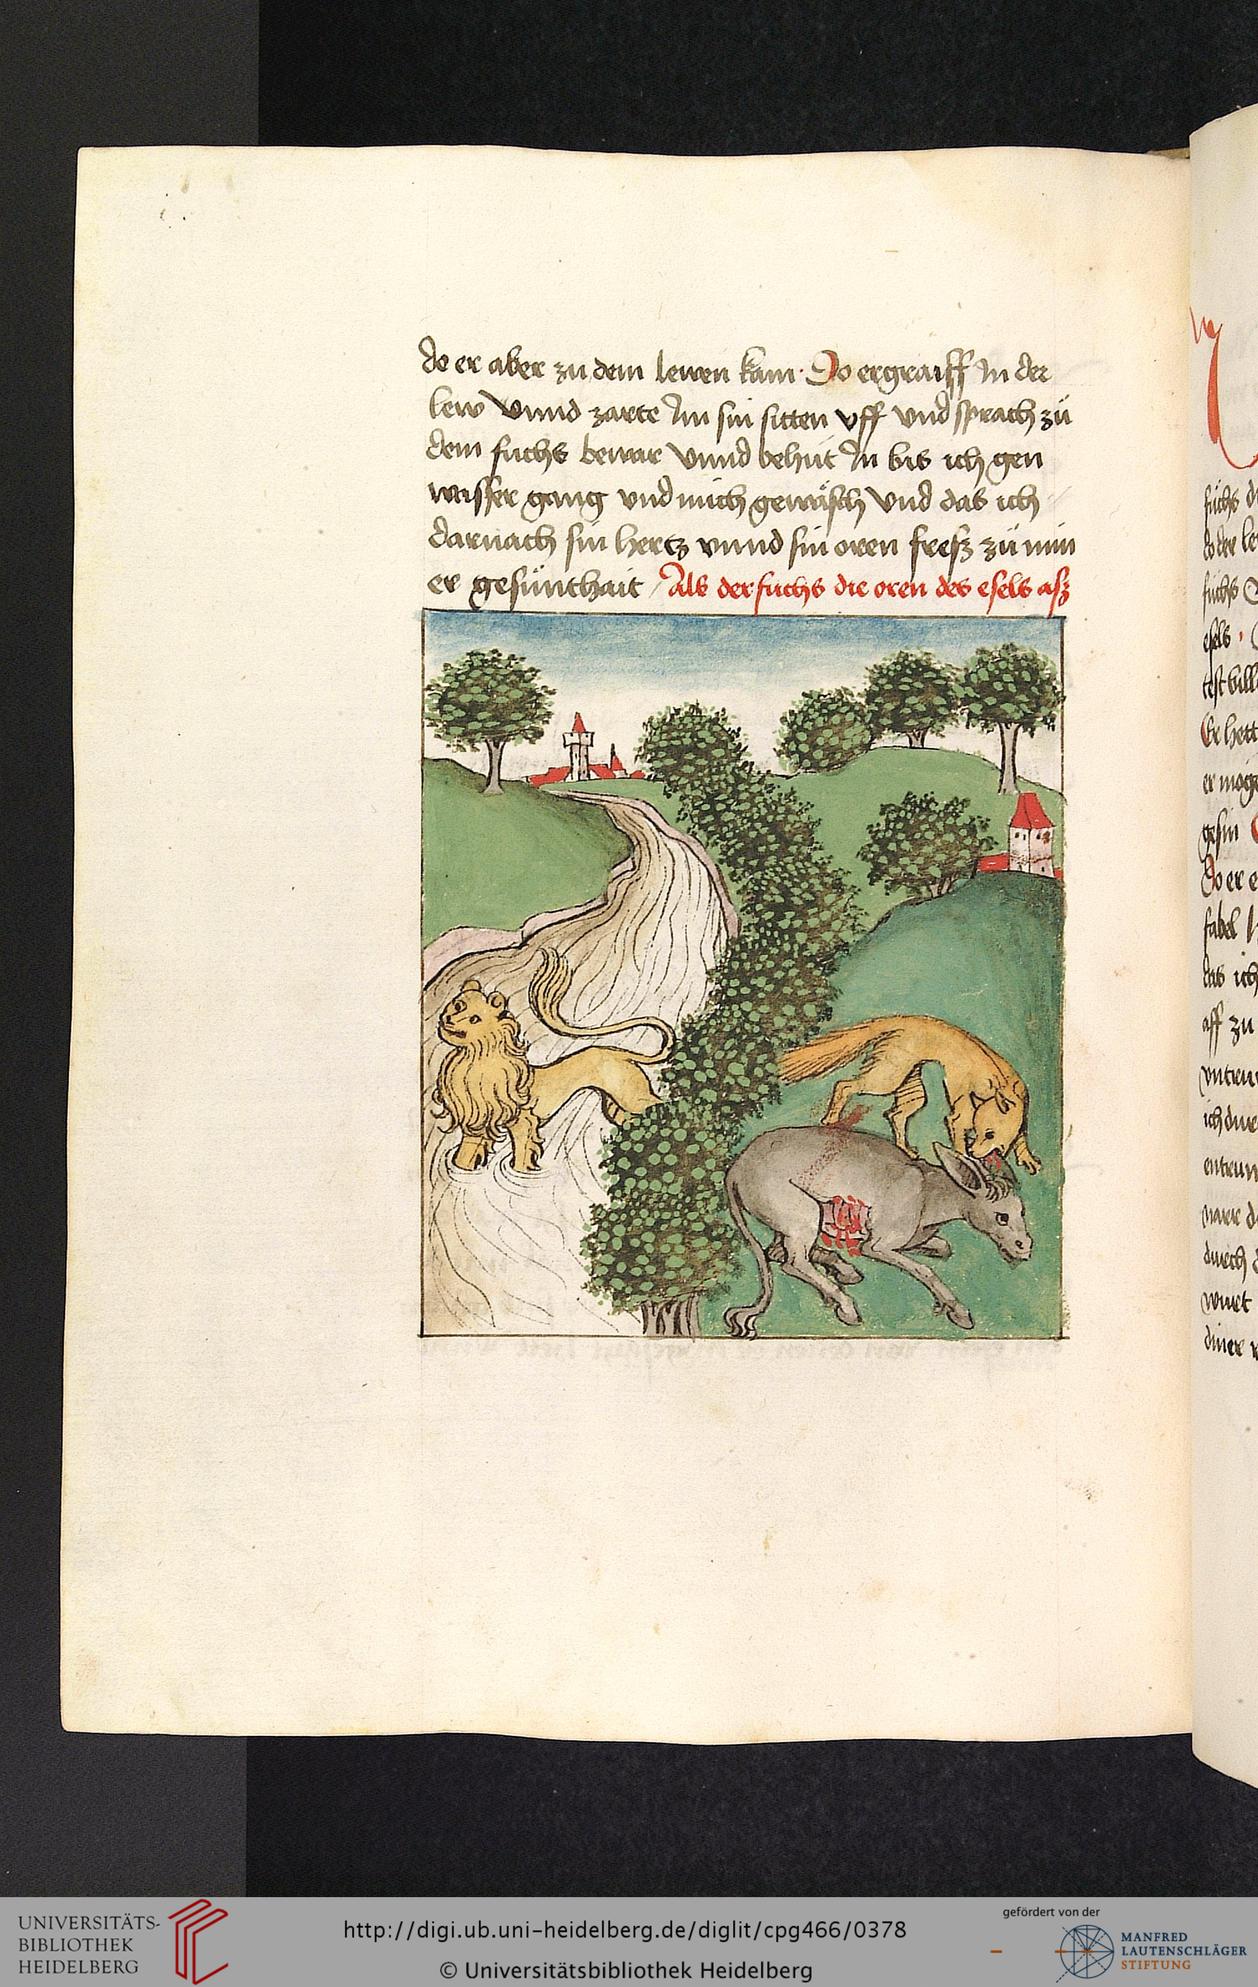 do er aber zu dem lewen kam · Do ergraiff In der
lew Vnnd zarte Im sin sitten vff vnd sprach zü
dem fuchs bewar Vnnd behüt In bis ich gen
wasser gang vnd mich gewäsch Vnd das ich
darnach sin hertz vnnd sin oren fresz zü min
er gesünthait / Als der fuchs die oren des esels asz
füchs
do der
füchs
esels ·
Er hett
gesin
Do er e
fabel
das ich
aff zu
durch
wurt
diner
UNIVERSITÄTS-
BIBLIOTHEK
HEIDELBERG
http://digi.ub.uni-heidelberg.de/diglit/cpg466/0378
© Universitätsbibliothek Heidelberg
gefördert von der
MANFRED
LAUTENSCHLÄGER
STIFTUNG